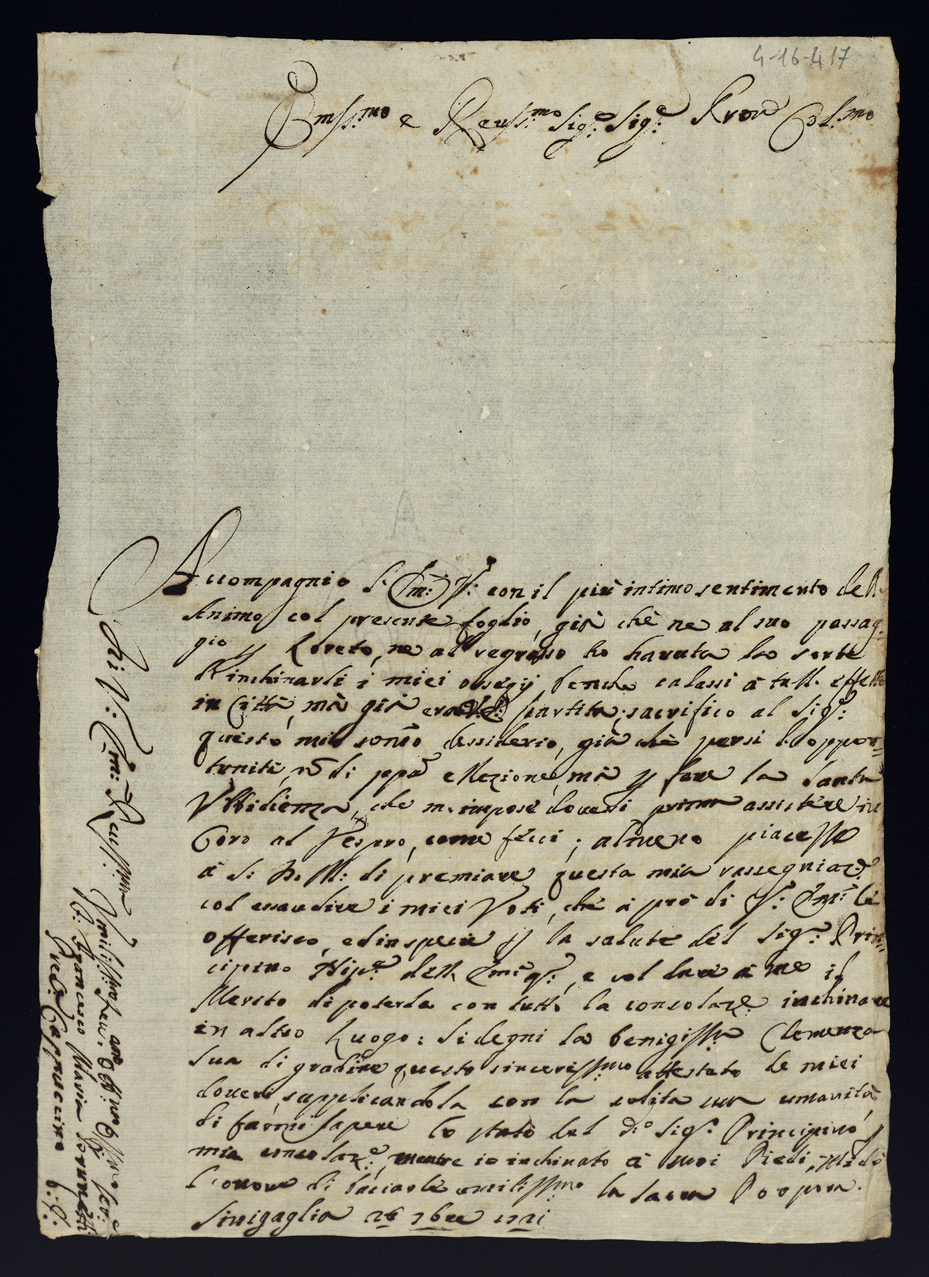 4-16-417
Em.mo e Reu.mo Sig.e Sig.e Pron Col.mo
Accompagnio l'Em: V: con il più intimo sentimento dell
Animo col presente foglio, già chè ne al suo passag-
gio p Loreto, ne al regresso ho havuta la sorte
d'inchinarli i miei ossequij benche calassi à tall'effetto
in Città, mà già era partita: sacrifico al Sig.e
questo mio sommo dessiderio, già chè persi l'oppor=
tunità nō di ppa ellezione, mà p fare la Santa
Vbbidienza, che m'impose doversi prima assistere in
Coro al Vespro, come feci; almeno piacesse
à S: D. M: di premiare questa mia rassegniaz.e
col essaudire i miei Voti, che à prò di V: Em: lè
offerisco, ed in specie p la salute del Sig.e Prin=
cipino Nip.e dell Em: , e col dare à me il
Merito di poterla con tutta la consolaz.e inchinare
in altro Luogo: si degni la benigissma Clemenza
sua di gradire questo sincerissmo attestato de miei
doveri, supplicandola con la solita sua umanità
di farmi sapere lo stato del do Sig.e Principino, p
mia consolaz.e, mentre io inchinato à suoi Piedi,
l'onore di baciarle umilissmo la sacra Porpora.
Sinigaglia 26 7bre 1721
Di V: Em: Reuma
Vmilissmo Deu. Oblmo Ser.e
F. Francesco Maria
Pred: Cappuccino